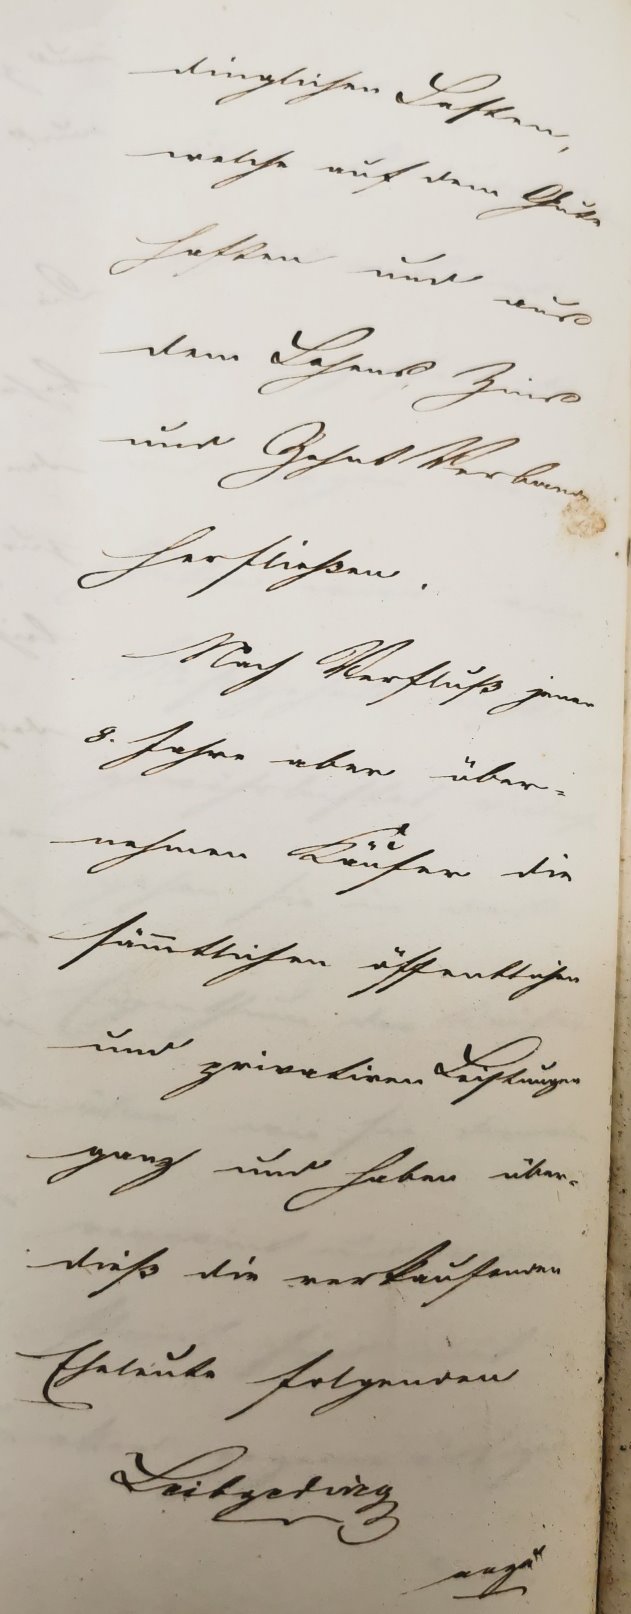 dinglichen Lasten,
welche auf dem Gute
haften und aus
dem Lehens, Zins
und Zehnt Verband
herfließen.
Nach Verfluß jener
8. Jahre aber über-
nehmen Käufer die
sämmtlichen öffentlichen
und privativen Leistungen
ganz und haben über-
dieß die verkaufenden
Eheleute folgenden
Leibgeding